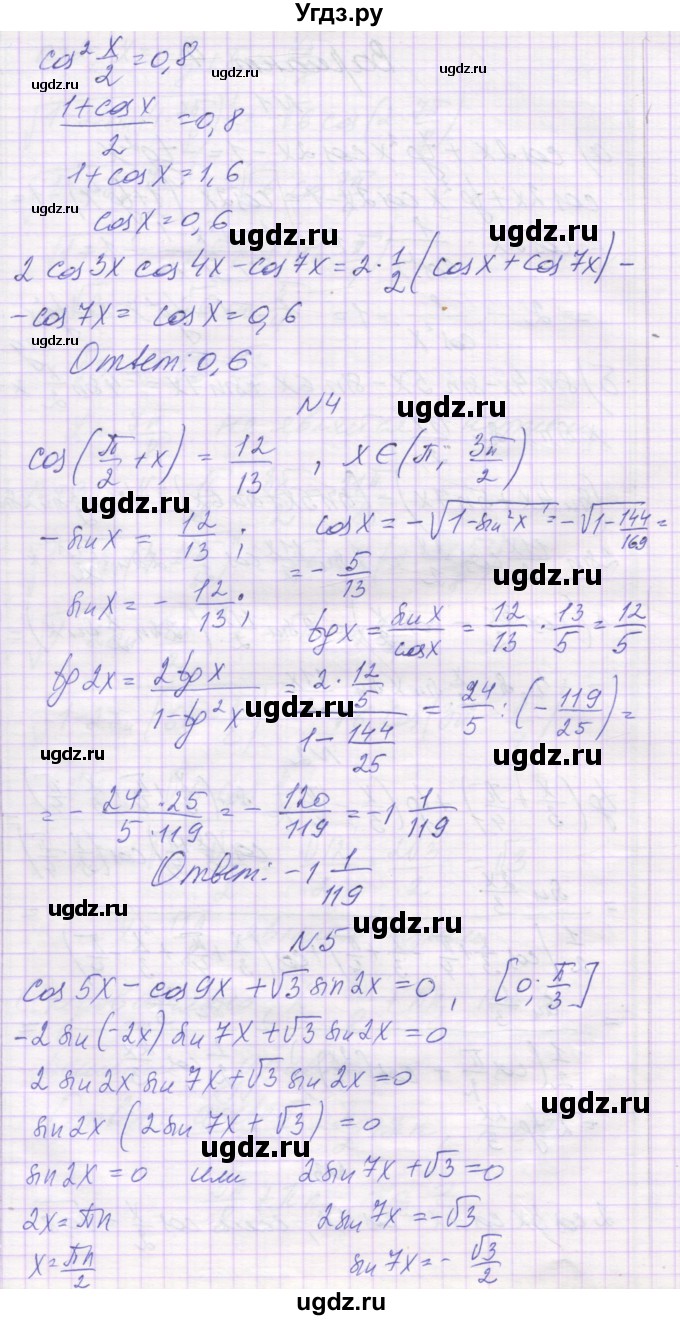 Угдз.ру
cos² x/2 = 0,8
ugdz.ru ugdz.ru ugdz.ru
(1+cosx)/2 = 0,8
1+cosx = 1,6
ugdz.ru
cosx = 0,6
ugdz.ru ugdz.ru
2 cos3x cos4x - cos7x = 2 · 1/2 (cosx + cos7x) -
- cos7x = cosx = 0,6
ugdz.ru
Ответ: 0,6
№4 ugdz.ru
cos(π/2 + x) = 12/13 , x ∈ (π; 3π/2)
ugdz.ru
- sinx = 12/13 ; cosx = -√(1-sin²x) = -√(1-144/169) =
= - 5/13 ugdz.ru
sinx = - 12/13 ; tgx = sinx/cosx = 12/13 · 13/5 = 12/5
tg2x = 2tgx/(1-tg²x) = (2 · 12/5)/(1 - 144/25) = 24/5 : (- 119/25) =
ugdz.ru
ugdz.ru ugdz.ru
= - (24 · 25)/(5 · 119) = - 120/119 = -1 1/119
Ответ: -1 1/119
ugdz.ru ugdz.ru
№5
cos5x - cos9x + √3 sin2x = 0 , [0; π/3]
-2 sin(-2x) sin7x + √3 sin2x = 0
2 sin2x sin7x + √3 sin2x = 0
ugdz.ru
sin2x (2sin7x + √3) = 0
ugdz.ru
sin2x = 0 или 2sin7x + √3 = 0
2x = πn 2sin7x = -√3
x = πn/2 sin7x = - √3/2
ugdz.ru